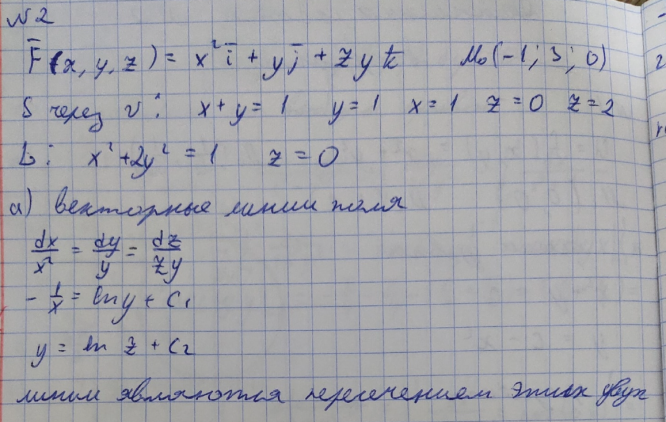 №2
F̄(x, y, z) = x² ī + y j̄ + z y k̄ M₀(-1; 3; 0)
S через v: x + y = 1 y = 1 x = 1 z = 0 z = 2
L: x² + 2y² = 1 z = 0
а) векторные линии поля
dx/x² = dy/y = dz/zy
- 1/x = ln y + C₁
y = ln z + C₂
линии являются пересечением этих двух